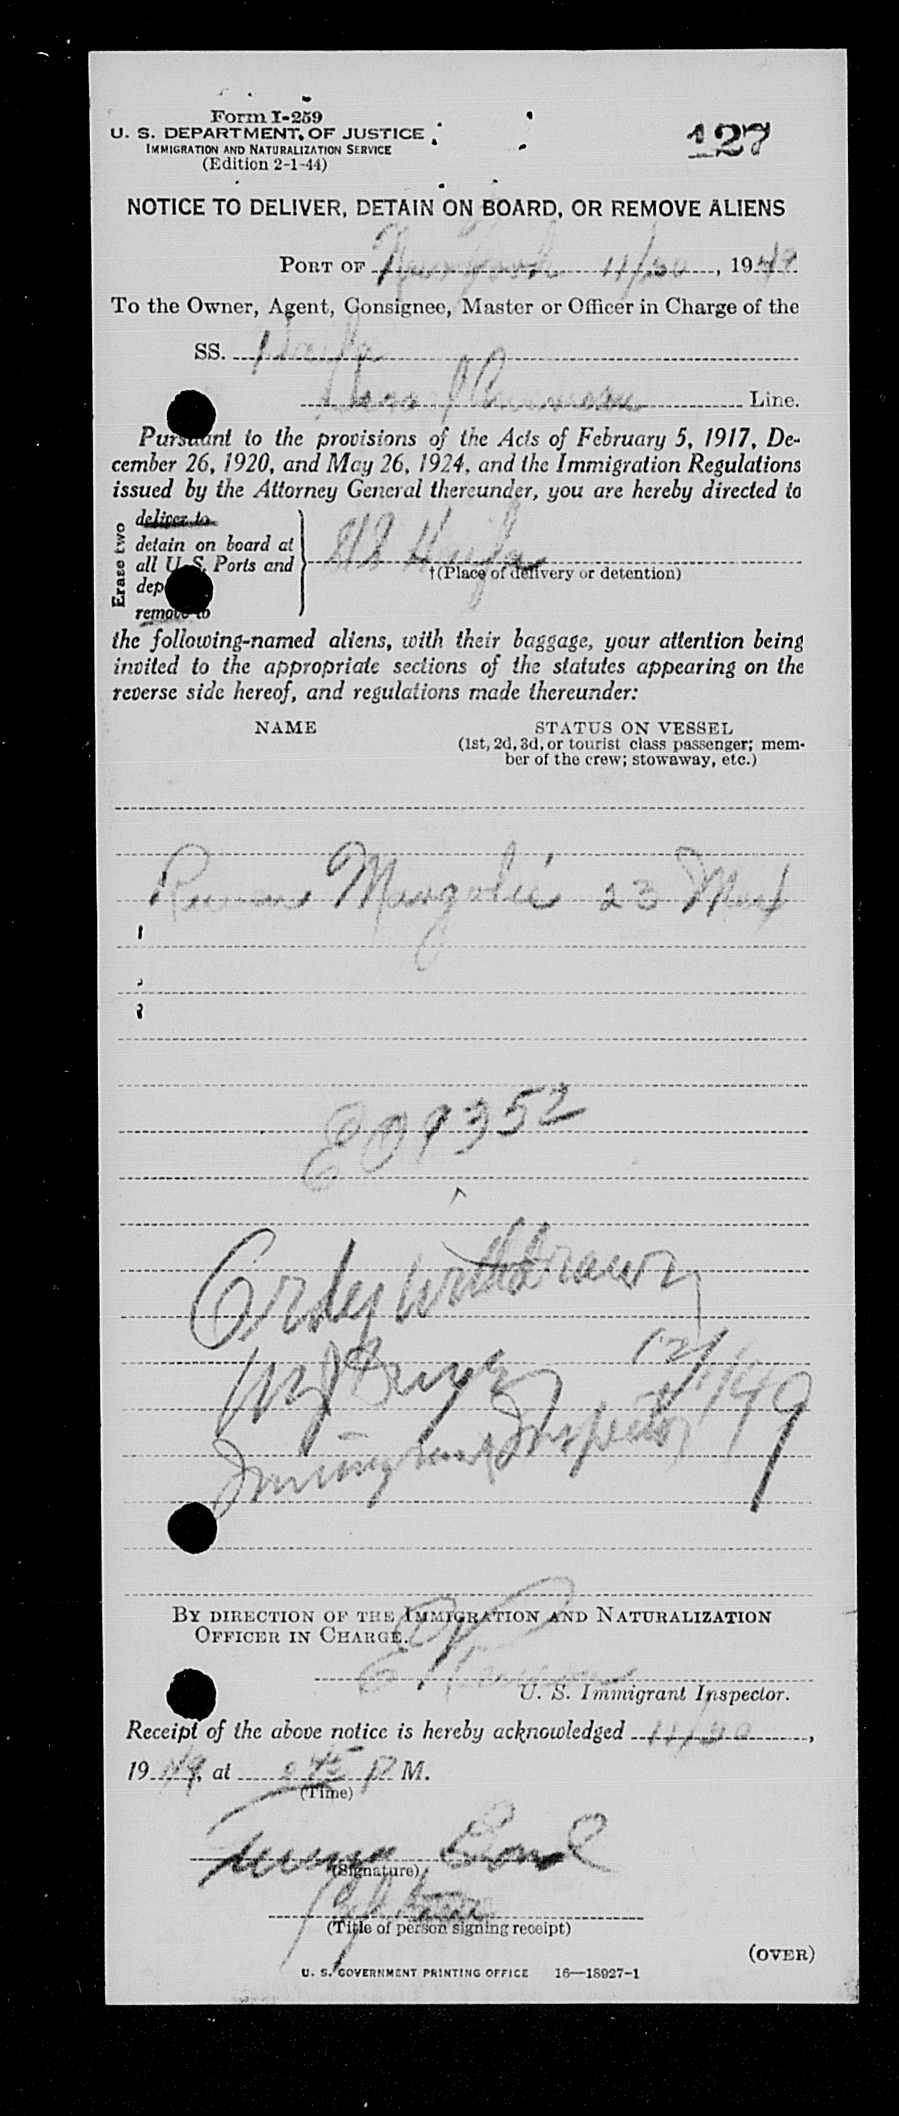 Form I-259
U. S. DEPARTMENT OF JUSTICE
IMMIGRATION AND NATURALIZATION SERVICE
(Edition 2-1-44)
127
NOTICE TO DELIVER, DETAIN ON BOARD, OR REMOVE ALIENS
PORT OF New York 11/30, 1949
To the Owner, Agent, Consignee, Master or Officer in Charge of the
SS. Haifa
Line.
Pursuant to the provisions of the Acts of February 5, 1917, De-
cember 26, 1920, and May 26, 1924, and the Immigration Regulations
issued by the Attorney General thereunder, you are hereby directed to
Erase two
deliver to
detain on board at
all U. S. Ports and
remove to
SS Haifa
†(Place of delivery or detention)
the following-named aliens, with their baggage, your attention being
invited to the appropriate sections of the statutes appearing on the
reverse side hereof, and regulations made thereunder:
NAME
STATUS ON VESSEL
(1st, 2d, 3d, or tourist class passenger; mem-
ber of the crew; stowaway, etc.)
Margolis 23
EO 9352
Order Withdrawn
12/1/49
Immigrant Inspector
BY DIRECTION OF THE IMMIGRATION AND NATURALIZATION
OFFICER IN CHARGE.
U. S. Immigrant Inspector.
Receipt of the above notice is hereby acknowledged 11/30,
1949, at 045 P M.
(Time)
(Signature)
(Title of person signing receipt)
(OVER)
U. S. GOVERNMENT PRINTING OFFICE 16—18927-1